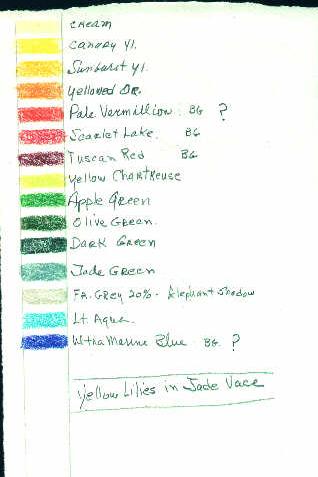 Cream
Canary Yl.
Sunburst Yl.
Yellowed Or.
Pale Vermillion : BG ?
Scarlet Lake. BG
Tuscan Red BG
Yellow Chartreuse
Apple Green
Olive Green.
Dark Green
Jade Green
F.A. Grey 20% - Elephant Shadow
Lt. Aqua.
Ultra Marine Blue BG ?
Yellow Lilies in Jade Vace